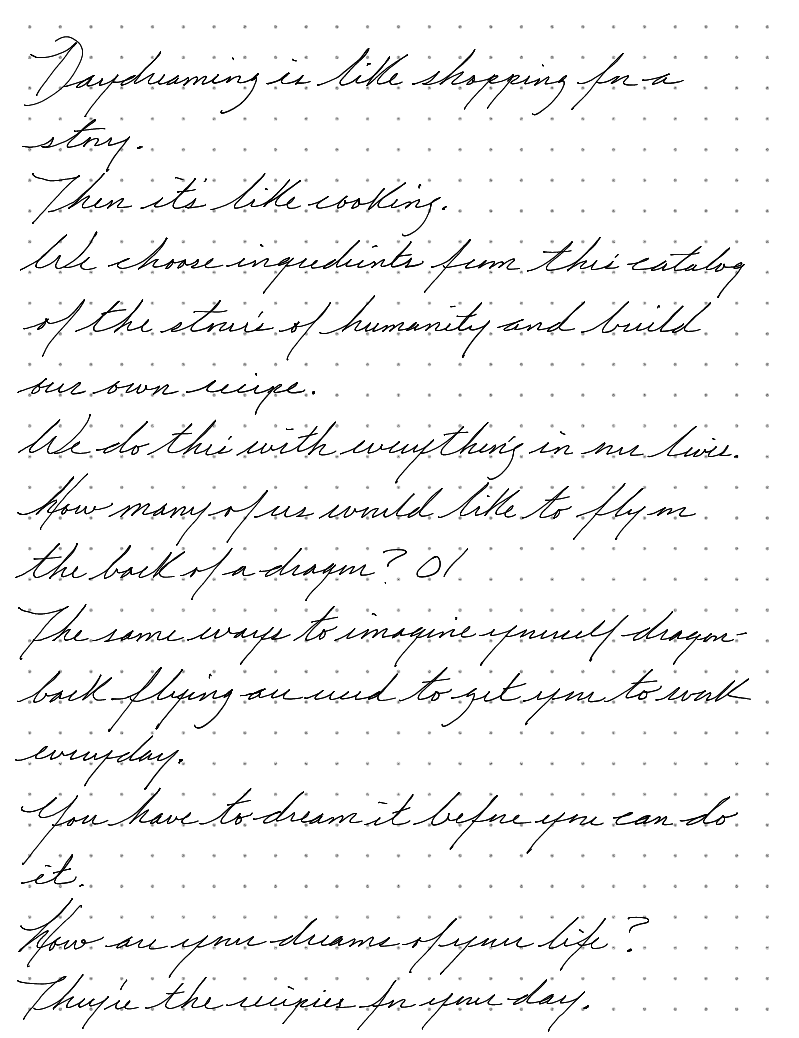 Daydreaming is like shopping for a
story.
Then it's like cooking.
We choose ingredients from this catalog
of the stories of humanity and build
our own recipe.
We do this with everything in our lives.
How many of us would like to fly on
the back of a dragon? 01
The same ways to imagine yourself dragon-
back flying are used to get you to work
everyday.
You have to dream it before you can do
it.
How are your dreams of your life?
They're the recipies for your day.